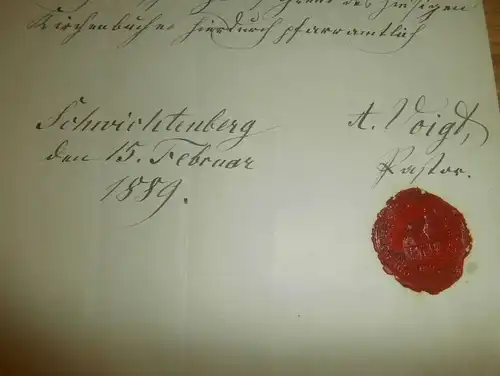 des hiesigen
Kirchenbuches hierdurch pfarramtlich
Schwichtenberg
den 15. Februar
1889.
A. Voigt,
Pastor.